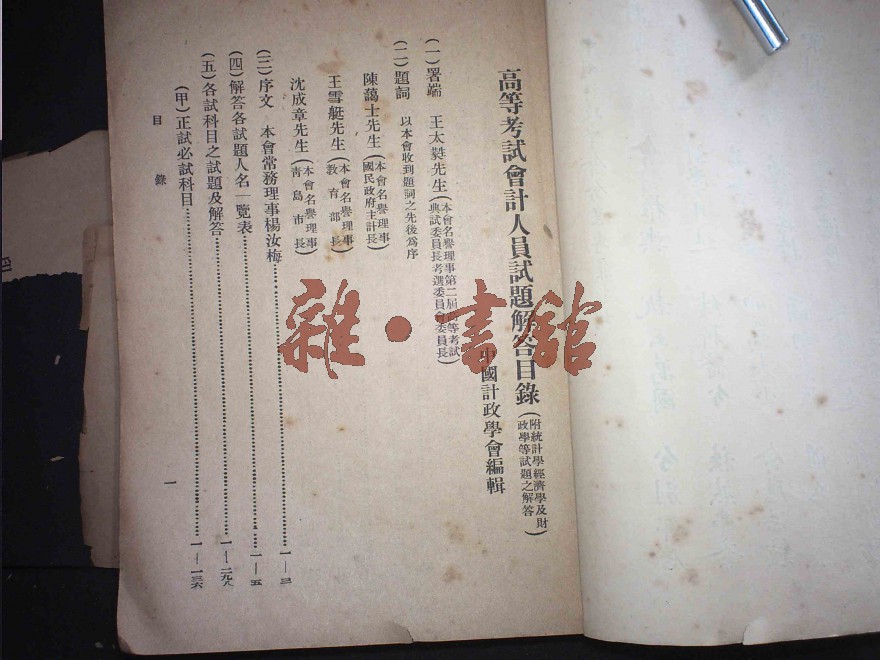 高等考試會計人員試題解答目錄(附統計學經濟學及財政學等試題之解答)
中國計政學會編輯
(一)署端 王太蕤先生(本會名譽理事第二屆高等考試典試委員長考選委員會委員長)
(二)題詞 以本會收到題詞之先後爲序
陳藹士先生(本會名譽理事國民政府主計長)
王雪艇先生(本會名譽理事教育部長)
沈成章先生(本會名譽理事靑島市長)
(三)序文 本會常務理事楊汝梅……一—三
(四)解答各試題人名一覽表……一—五
(五)各試科目之試題及解答……一—二九八
(甲)正試必試科目……一—一三六
目錄
一
雜·書館